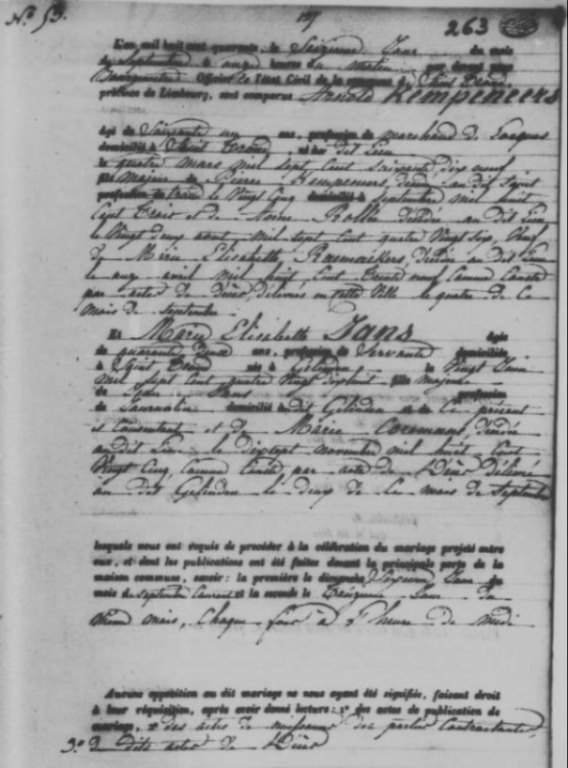 N.° 53.
263
L'an mil huit cent quarante, le Seizieme Jour du mois
de Septembre à onze heures du matin par devant nous
Officier de l'état Civil de la commune de Saint Trond,
province de Limbourg, sont comparus Arnold Kempeneers
âgé de Soixante un ans, profession de marchand de
domicilié à Saint Trond, né au dit Lieu
le quatre mars mil Sept Cent Soixante dix neuf
fils majeur de Pierre Kempeneers, décédé au dit Saint
Trond le Vingt Cinq Septembre mil huit
Cent Trois et de Marie Rolle décédée au dit Lieu
le Vingt deux août mil Sept Cent quatre Vingt Six, Veuf
de Marie Elisabeth Raemaekers, décédée au dit Lieu
le onze avril mil huit Cent Trente neuf Comme Conste
par actes de décès, délivrés en cette Ville le quatre de Ce
mois de Septembre.
Et Marie Elisabeth Jans âgée
de quarante deux ans, profession de Servante domiciliée
à Saint Trond née à Gelinden le Vingt Juin
mil Sept Cent quatre Vingt dix huit fille majeure
de Jean Jans profession
de Journalier domicilié à dit Gelinden et de Ce présent
et Consentant et de Marie Coremans décédée
au dit Lieu le dix sept novembre mil huit Cent
Vingt Cinq, Comme Conste par acte de Décès Délivré
au dit Gelinden le deux de Ce mois de Septembre
lesquels nous ont requis de procéder à la célébration du mariage projeté entre
eux, et dont les publications ont été faites devant la principale porte de la
maison commune, savoir: la première le dimanche Sixieme Jour du
mois de Septembre Courant et la seconde le Treizieme Jour du
même mois, Chaque fois à l'heure de midi
Aucune opposition au dit mariage ne nous ayant été signifiée, faisant droit
à leur réquisition, après avoir donné lecture: 1° des actes de publication de
mariage, 2° des actes de naissance des parties Contractantes,
3.° du dits actes de Décès